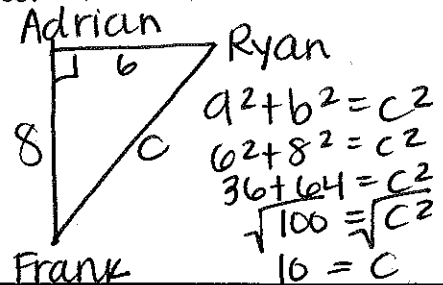 Adrian
Ryan
6
8
c
Frank
a²+b²=c²
6²+8²=c²
36+64=c²
√100=√c²
10=c